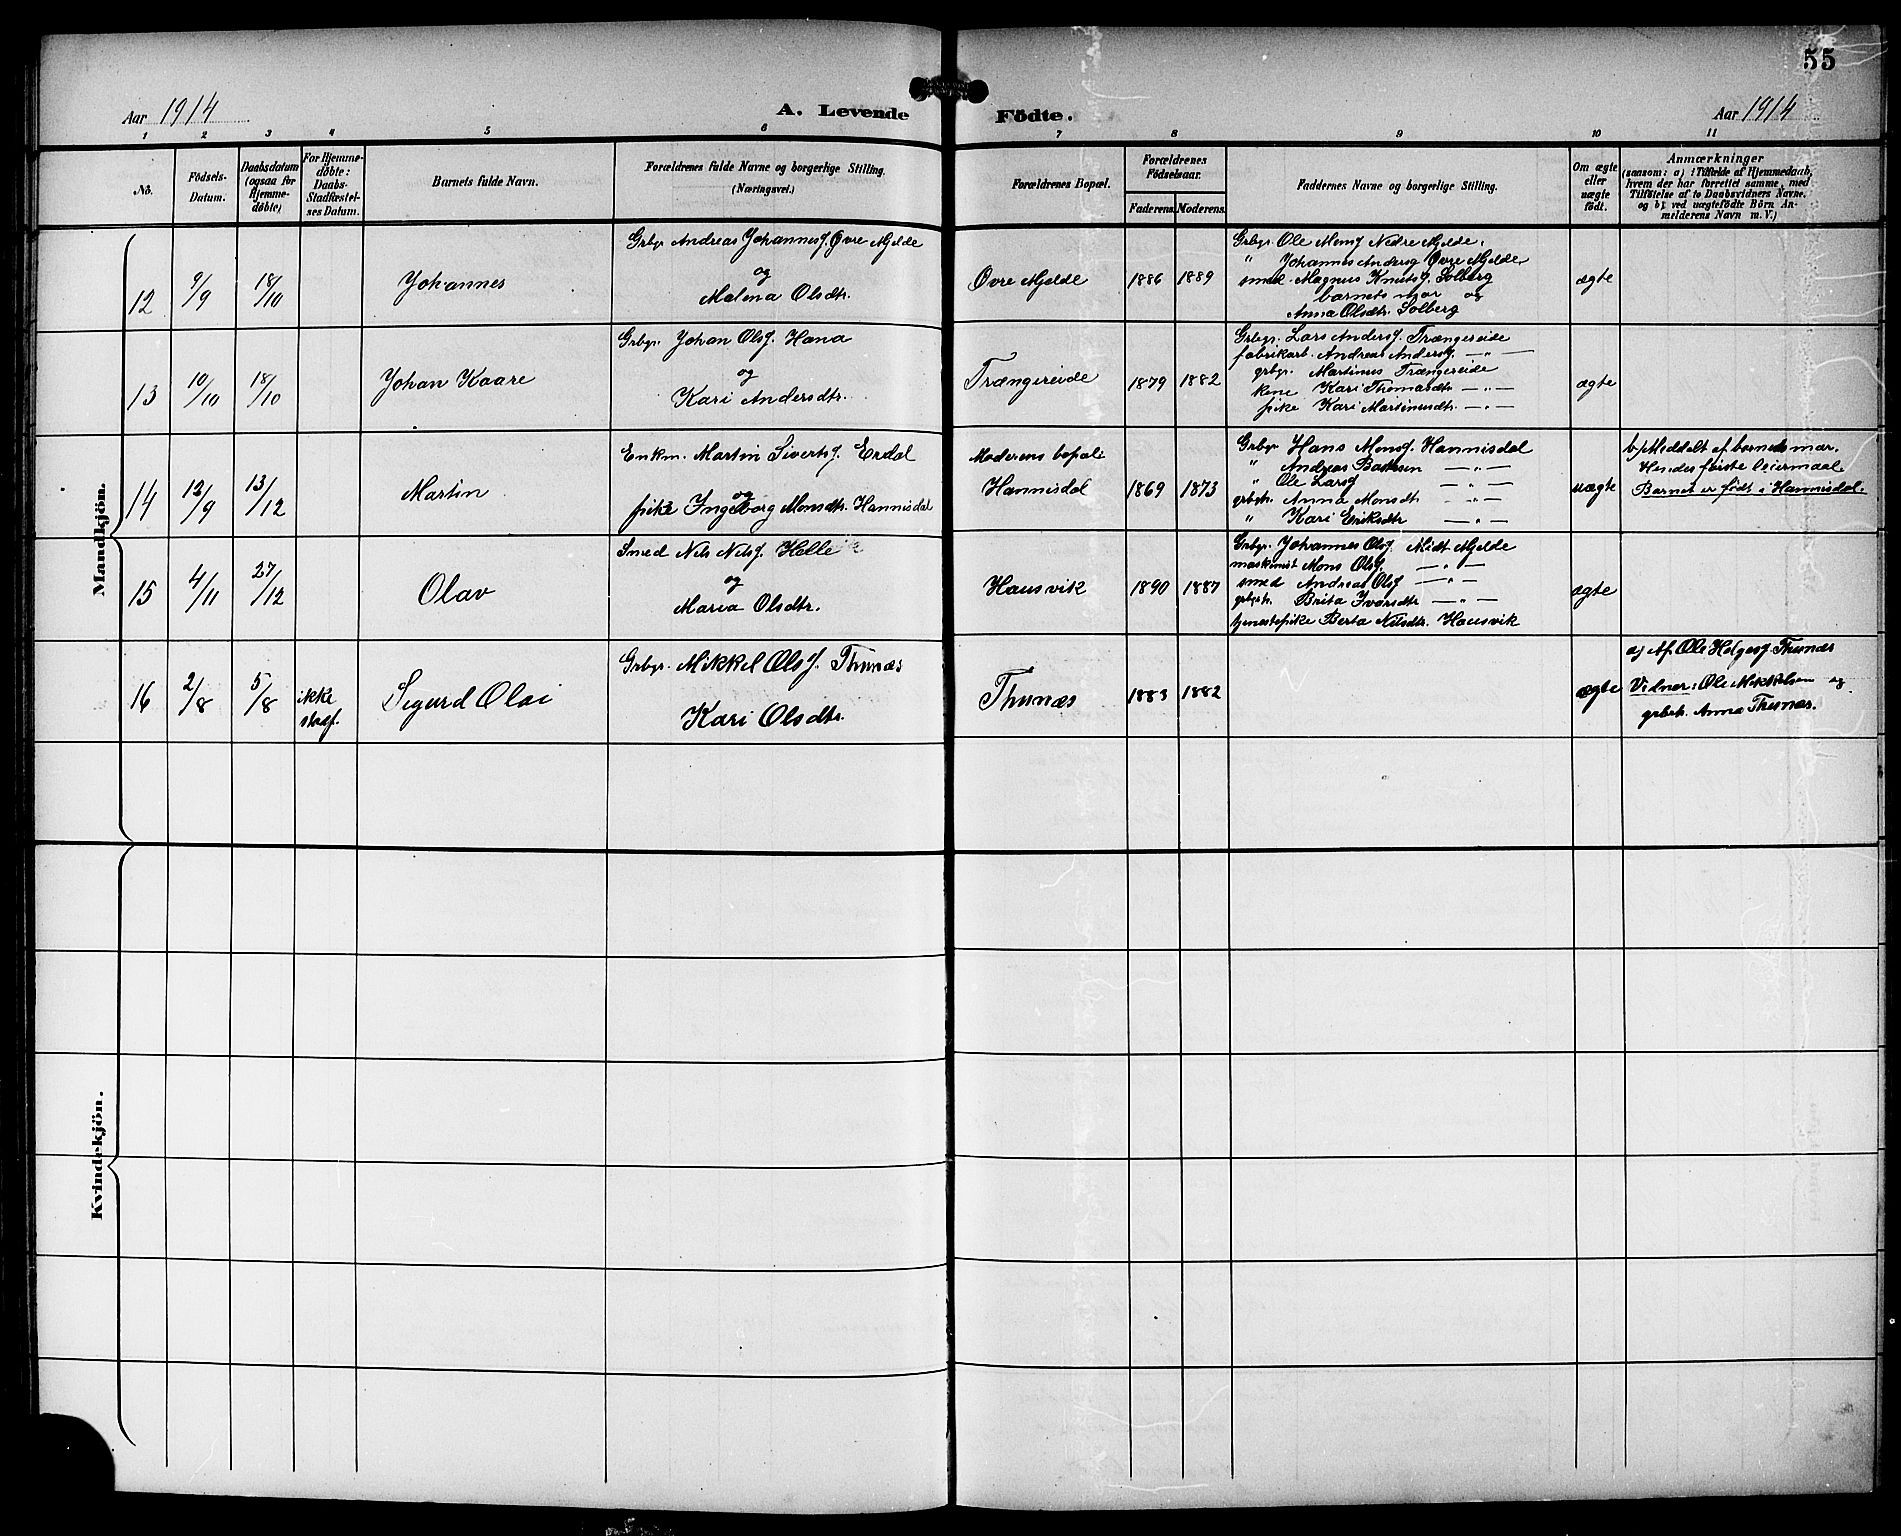 55
Aar 1914
A. Levende Födte.
Aar 1914
1 2 3 4 5 6 7 8 9 10 11
No.
Födsels-Datum.
Daabsdatum (ogsaa for Hjemme-döbte)
For Hjemme-döbte: Daabs-Stadfæstel-ses Datum.
Barnets fulde Navn.
Forældrenes fulde Navne og borgerlige Stilling.
(Næringsvei.)
Forældrenes Bopæl.
Forældrenes Födselsaar.
Faderens.
Moderens.
Faddernes Navne og borgerlige Stilling.
Om ægte eller uægte födt.
Anmærkninger
(saasom: a) i Tilfælde af Hjemmedaab,
hvem der har forrettet samme, med
Tilföielse af to Daabsvidners Navne,
og b) ved uægtefödte Börn An-
melderens Navn m. V.)
Mandkjön.
12
9/9
18/10
Johannes
Grbgr. Andreas Johannesf. Øvre Mjelde
og
Malena Olsdtr.
Øvre Mjelde
1886
1889
Grbgr. Ole Monsf Nedre Mjelde.
" Johannes Andersf Øvre Mjelde.
smed Magnus Knutsf. Solberg
barnets mor og
Anna Olsdtr. Solberg
ægte
13
10/10
18/10
Johan Kaare
Grbgr. Johan Olsf. Hana
og
Kari Andersdtr.
Trængereide
1879
1882
Grbgr. Lars Andersf. Trængereide
fabrikarb. Andreas Andersf. — " —
grbgr. Martines Trængereide
kone Kari Thomasdtr — " —
pike Kari Martinusdtr. — " —
ægte
14
12/9
13/12
Martin
Enkm. Martin Sivertsf. Erdal
og
pike Ingeborg Monsdtr. Hannisdal
Moderens bopæl:
Hannisdal
1869
1873
Grbgr Hans Monsf. Hannisdal
" Andreas — " —
" Ole Larsf — " —
grbgrk. Anna Monsdtr — " —
" Kari Eriksdtr — " —
uægte
b) Meddelt af barnets mor.
Hendes første leiermaal.
Barnet er født i Hannisdal.
15
4/11
27/12
Olav
Smed Nils Nilsf. Helle
og
Maria Olsdtr.
Hausvik
1890
1887
Grbgr. Johannes Olsf. Midt Mjelde
maskinist Mons Olsf. — " —
smed Andreas Olsf — " —
grbgrk. Brita Ivarsdtr — " —
tjenestepike Berta Nilsdtr. Hausvik
ægte
16
2/8
5/8
ikke
stadf.
Sigurd Olai
Grbgr. Mikkel Olsf. Thunæs
Kari Olsdtr.
Thunæs
1883
1882
ægte
a) Af Ole Helgesf. Thunæs
Vidner: Ole Mikkelsen og
grbrk. Anna Thunæs.
Kvindekjön.